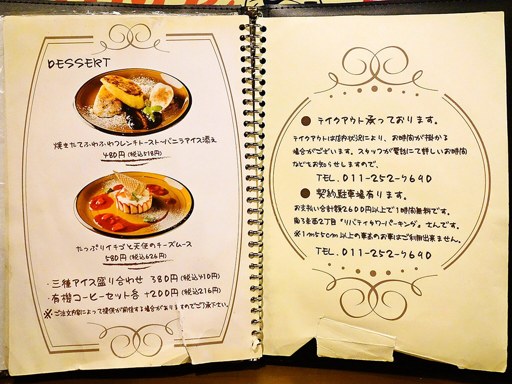 DESSERT
焼きたてふわふわフレンチトースト〜バニラアイス添え
480円(税込518円)
たっぷりイチゴと天使のチーズムース
580円(税込626円)
・三種アイス盛り合わせ 380円(税込410円)
・有機コーヒーセット各 +200円(税込216円)
※ご注文内容によって提供が前後する場合がありますのでご了承下さい。
● テイクアウト承っております。
テイクアウトは店内状況により、お時間が掛かる
場合がございます。スタッフが電話にて詳しいお時間
などをお知らせしますので、
TEL. 011-252-7690
● 契約駐車場有ります。
お支払い合計額2600円以上で1時間無料です。
南3条西2丁目『リバティタワーパーキング』さんです。
※1m55cm以上の車高のお車はご利用出来ません。
TEL. 011-252-7690